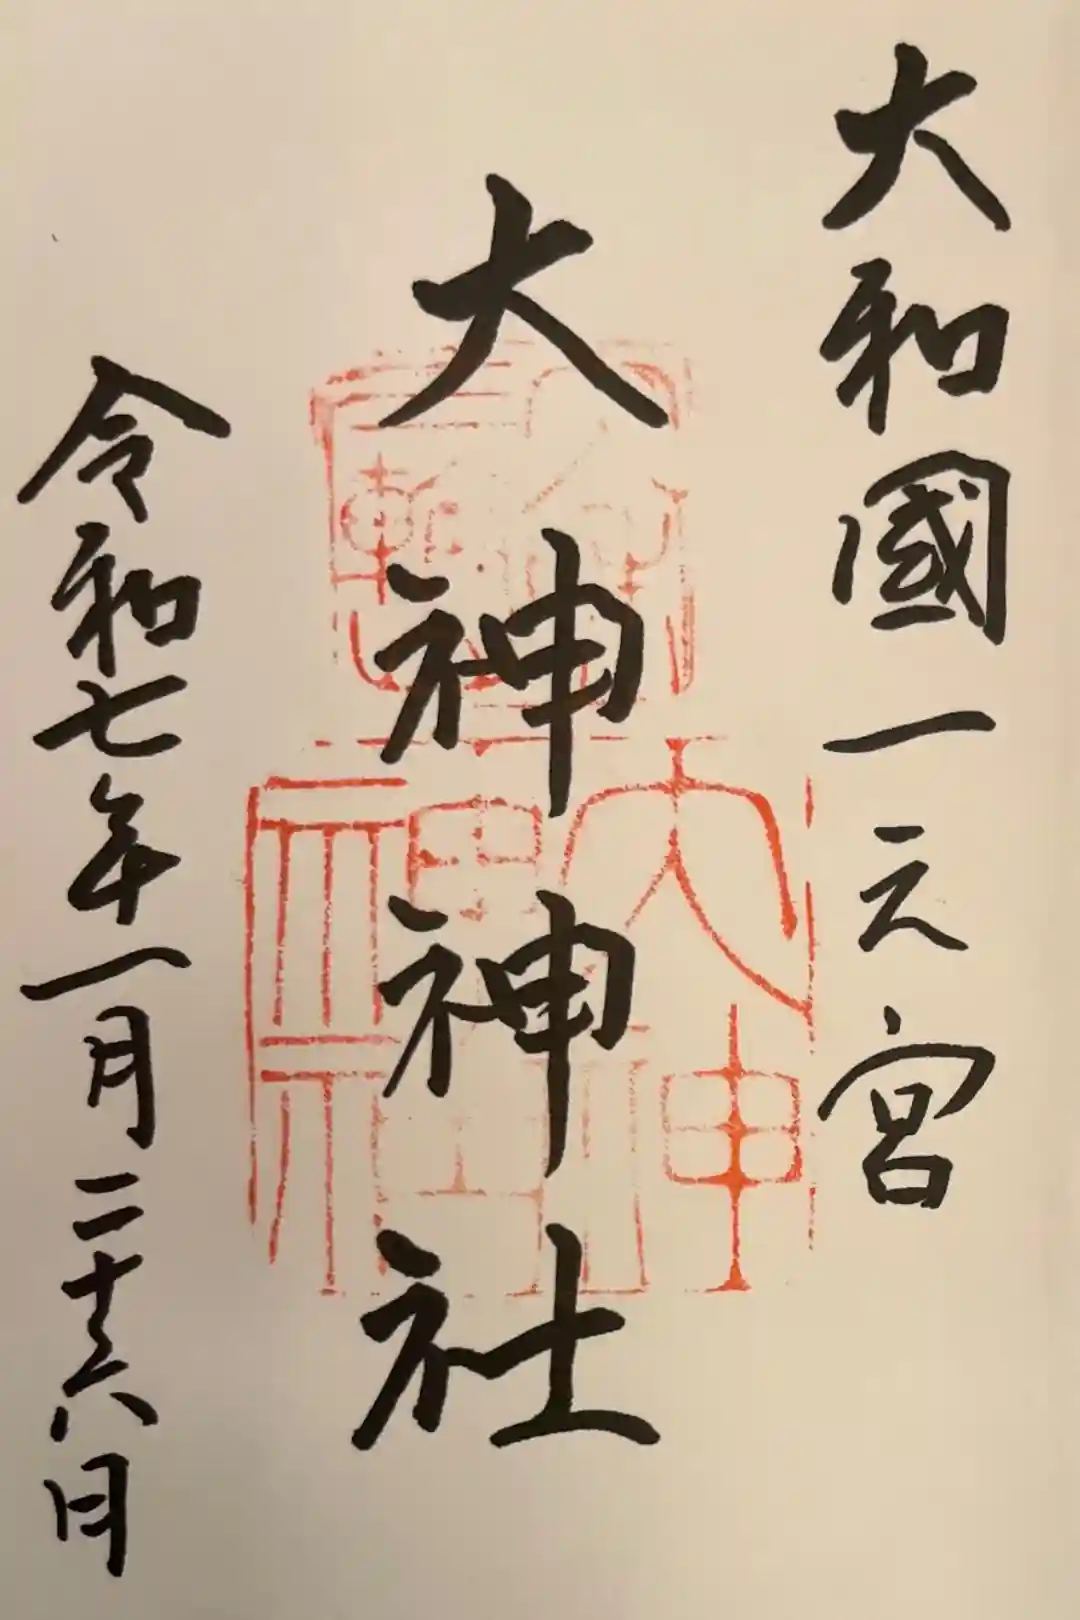 大和國一之宮
大神神社
大神
神社
令和七年一月二十六日